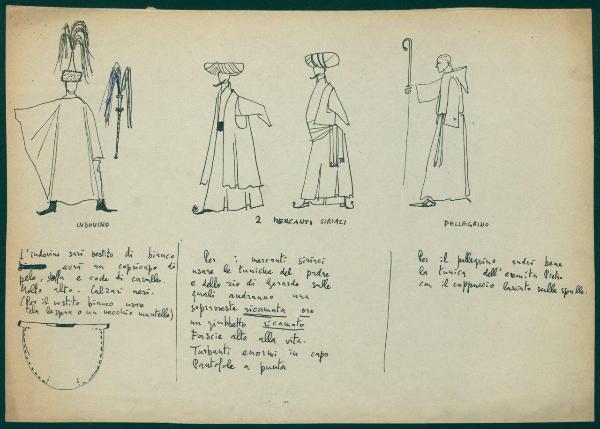 INDOVINO
2 MERCANTI SIRIACI
PELLEGRINO
L'indovino sarà vestito di bianco
avrà un copricapo di
pelo, stoffa e code di cavallo.
Molto alto. Calzari neri.
(Per il vestito bianco usare
tela leggera o un vecchio mantello)
Per i mercanti siriaci
usare le tuniche del padre
e dello zio di Gerardo sulle
quali andranno una
sopraveste ricamata oro
un giubbetto ricamato
Fascie alte alla vita.
Turbanti enormi in capo
Pantofole a punta
Per il pellegrino andrà bene
la tunica dell'eremita Pietro
con il cappuccio lasciato sulle spalle.